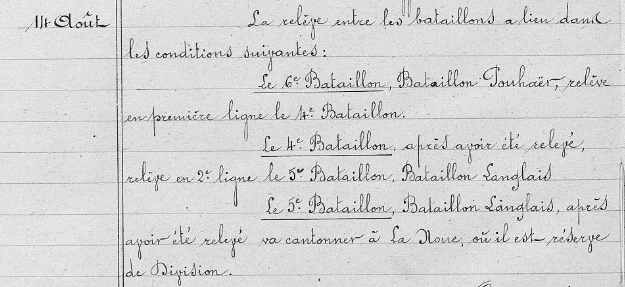 14 Août La relève entre les bataillons a lieu dans
les conditions suivantes :
Le 6e Bataillon, Bataillon Pouhaër, relève
en première ligne le 4e Bataillon.
Le 4e Bataillon, après avoir été relevé,
relève en 2e ligne le 5e Bataillon, Bataillon Langlais
Le 5e Bataillon, Bataillon Langlais, après
avoir été relevé va cantonner à La Noue, où il est réserve
de Division.